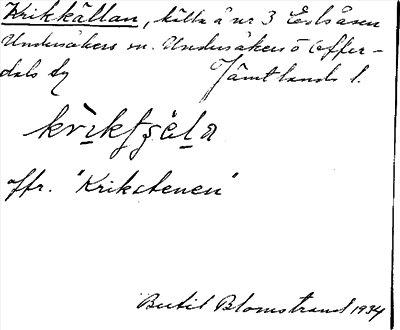 Krikkällan, källa å nr 3 Edsåsen
Undersåkers sn. Undersåkers o Offer-
dals tg Jämtlands l.
krìkfʂel̀a
ffr. "Krikstenen"
Bertil Blomstrand 1934